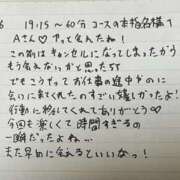 6 19:15~60分コースの本指名様♡
Aさん♡ やっと会えたね！
この前はキャンセルになってしまったから
もう会えないかと思ったST
でもこうやってお仕事の途中なのに
会いに来てくれたのすごい嬉しかったよ！
行動に移してくれてありがとう♡
今回も楽しくて時間すぎるの
一瞬だったよね…
また早めに会えるといいなっ！